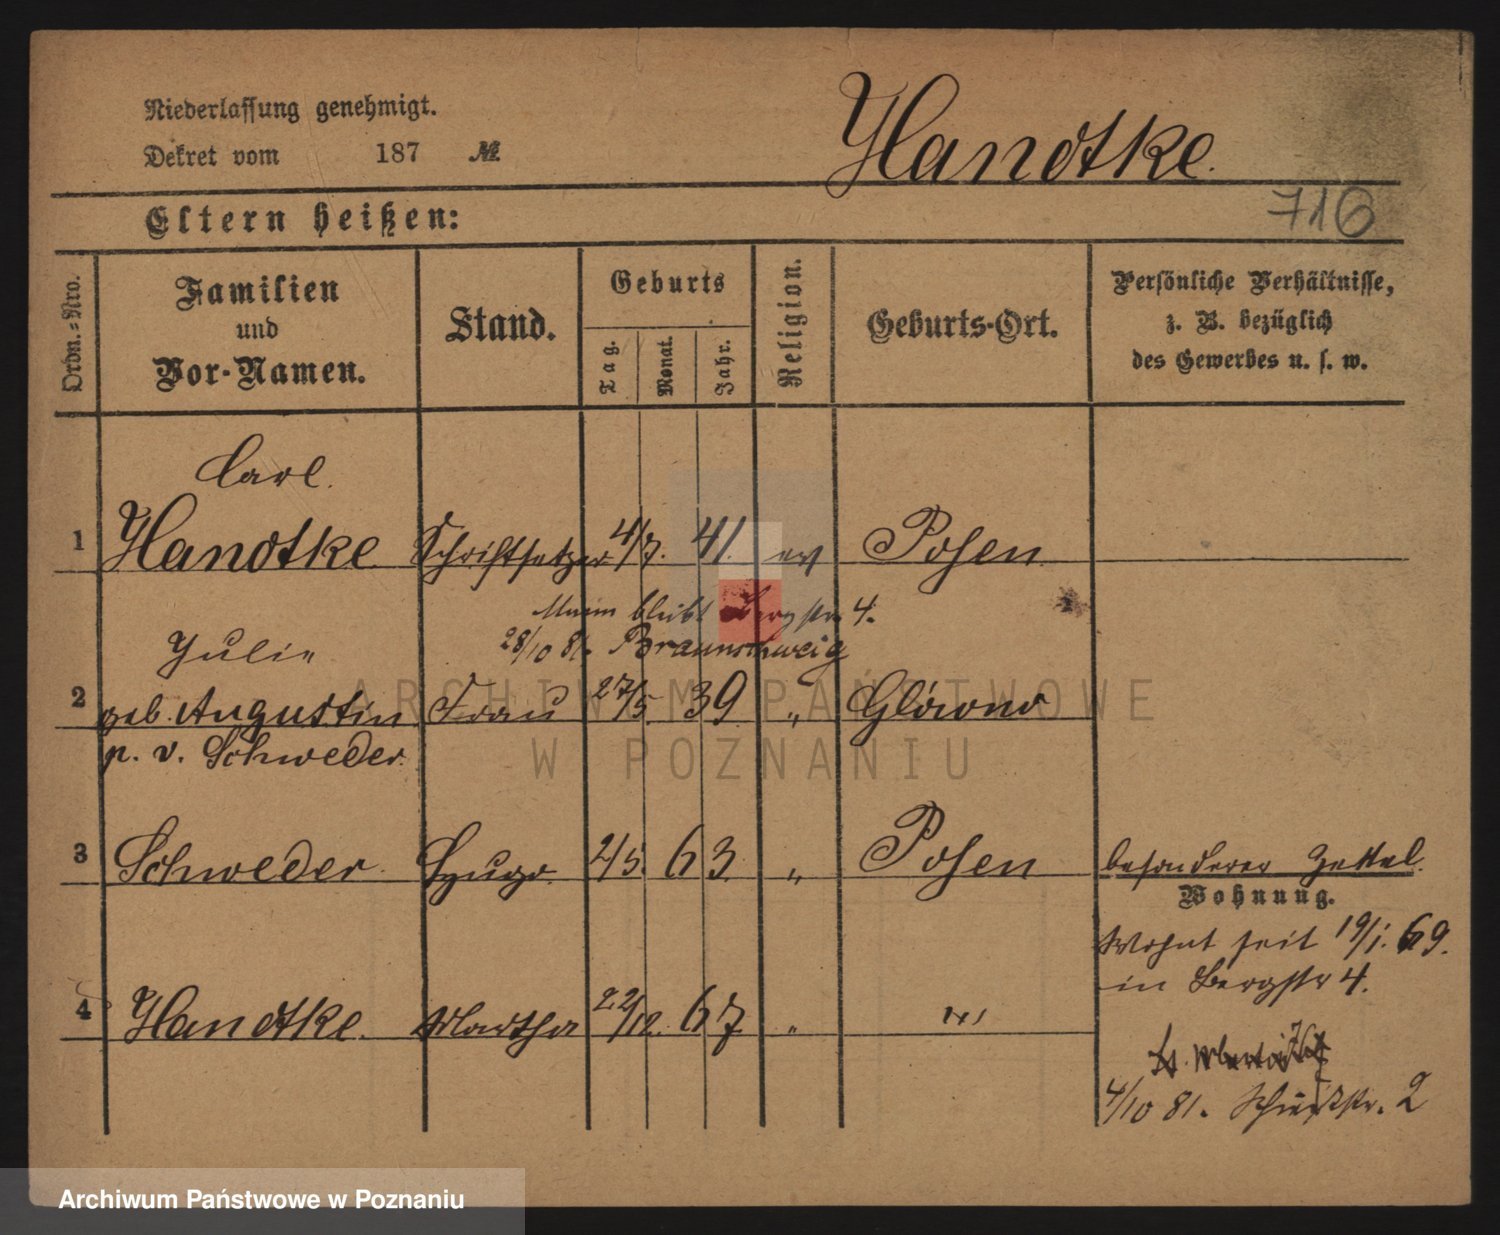 Niederlassung genehmigt.
Dekret vom 187 №
Handtke.
716
Eltern heißen:
Ordn.-Nro.
Familien und Vor-Namen.
Stand.
Geburts
Tag. Monat. Jahr.
Religion.
Geburts-Ort.
Persönliche Verhältnisse,
z. B. bezüglich
des Gewerbes u. s. w.
Carl.
1 Handtke Schriftsetzer 4/7. 41. ev Posen
bleibt Bergstr 4.
28/10 81. Braunschweig
Julie
2 geb. Augustin Frau 27/5. 39 " Glówno
p. v. Schweder
3 Schweder Hugo 2/5. 63 " Posen besonderer Zettel.
Wohnung.
Wohnt seit 19/1. 69.
in Bergstr 4.
4 Handtke. Martha 22/12. 67 "
4/10 81. Schützstr. 2
ARCHIWUM PAŃSTWOWE
W POZNANIU
Archiwum Państwowe w Poznaniu